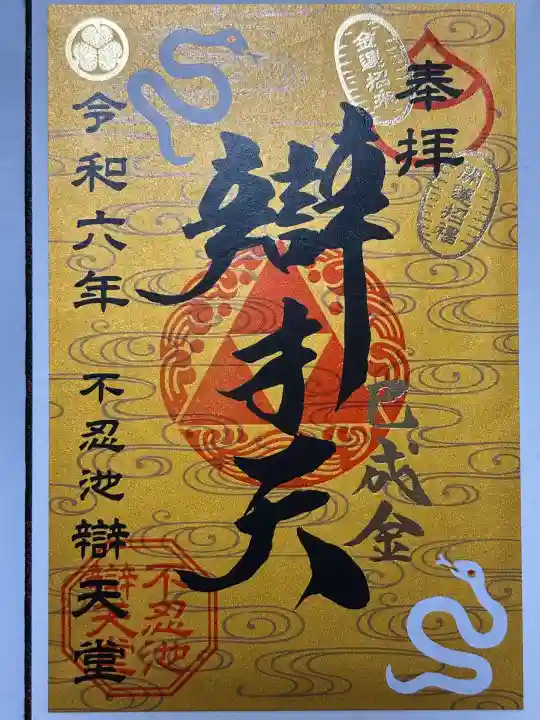 奉拝
金運招来
開運招福
辯才天
巳成金
令和六年
不忍池辯天堂
不忍池
辯天堂